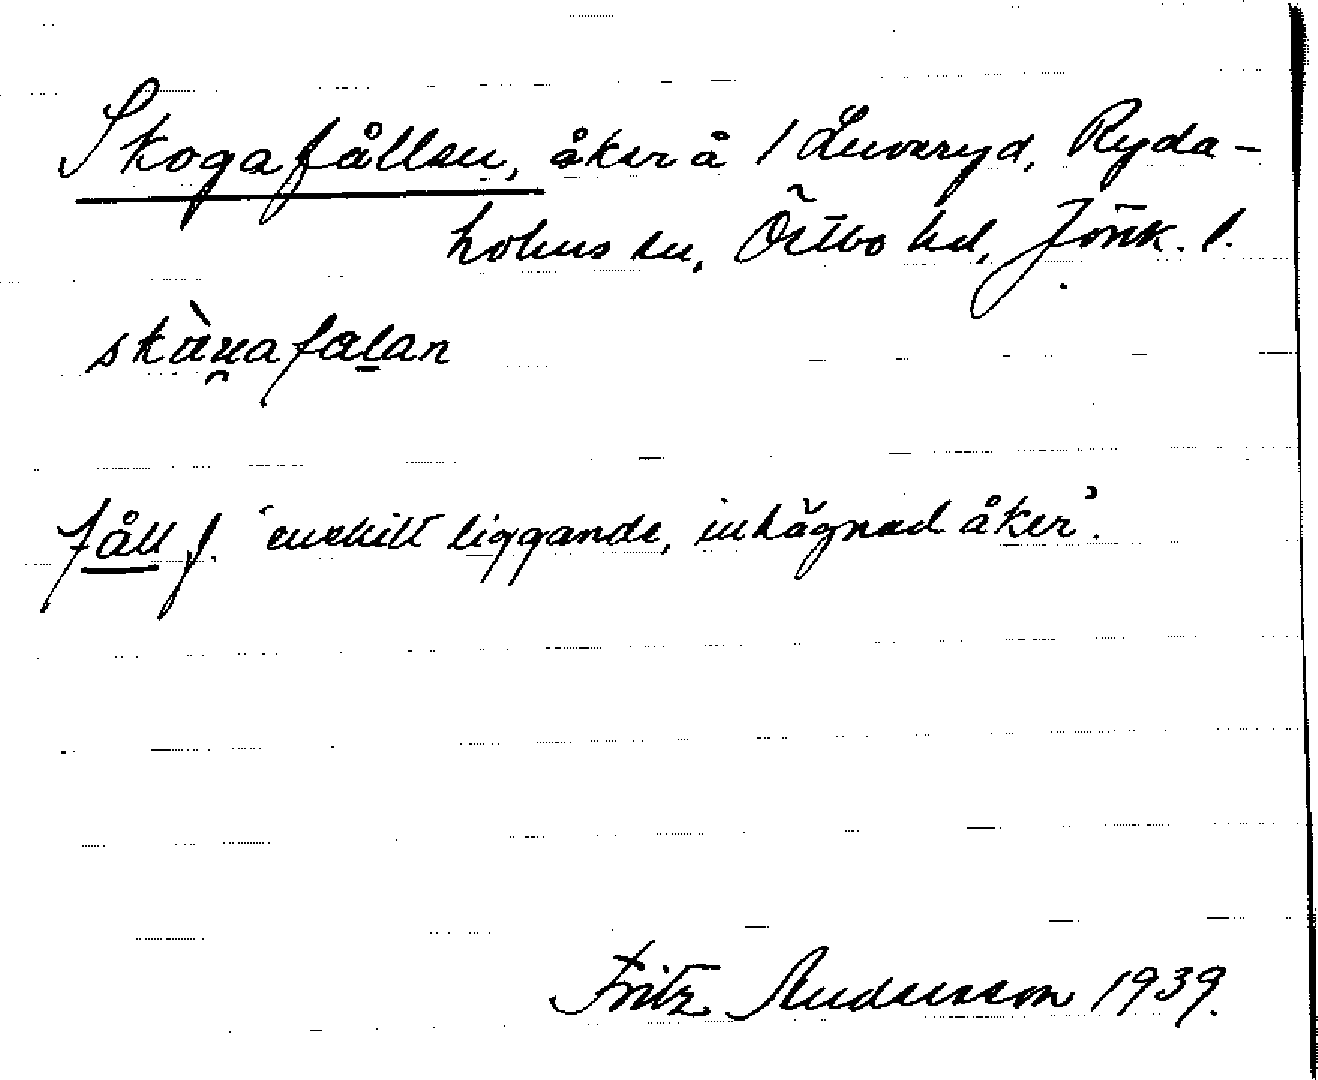 Skogafållen, åker å 1 Änvaryd, Ryda-
holms sn, Östbo hd, Jönk. l.
skòu̯afa̱lan
fåll f. 'enskilt liggande, inhägnad åker'.
Fritz Andersson 1939.